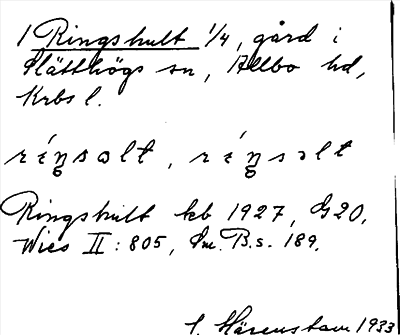 1 Ringshult 1/4, gård i
Slätthögs sn, Allbo hd,
Krbs l.
ríŋsəlt, ríŋsəlt
Ringshult kb 1927, G20,
Wies II: 805, Sm. B.s. 189.
S. Härenstam 1933